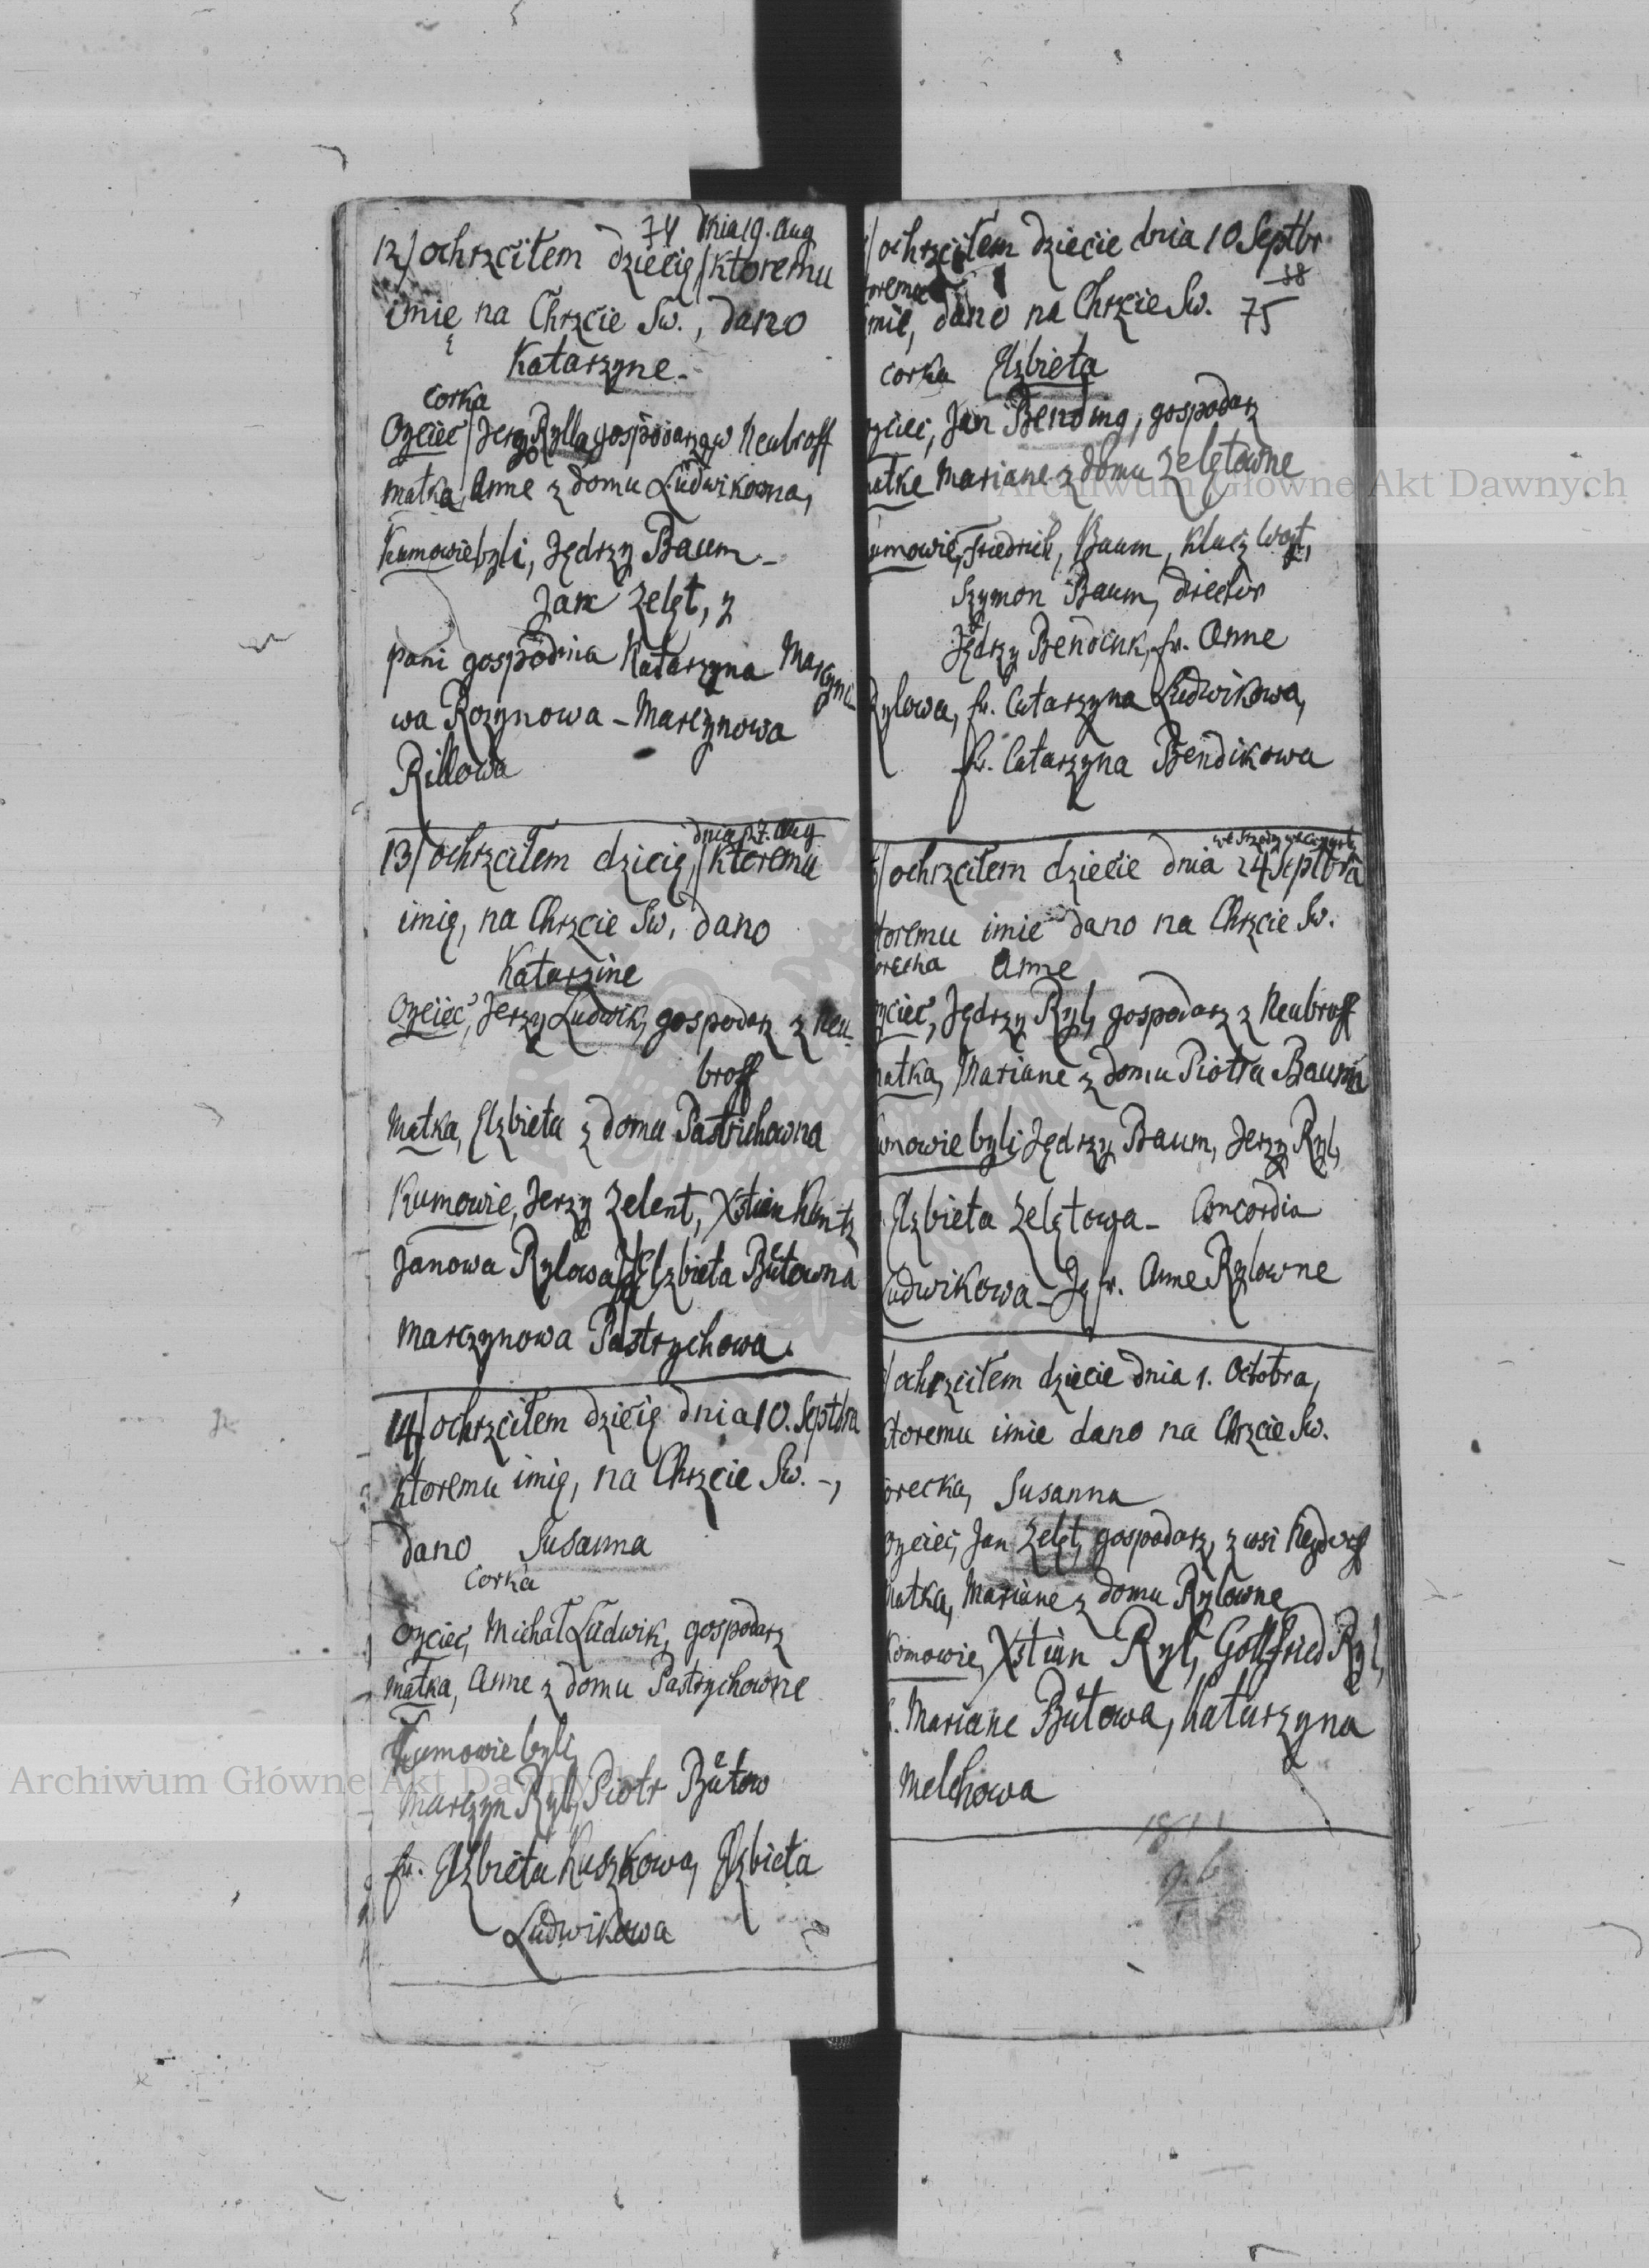 74 dnia 19. Aug
12) ochrzciłem dziecię / ktoremu
imię na Chrzcie Sw., dano
Katarzyne.
Corka
Oyciec / Jerzy Rylla, gospodarz, w Neubroff
matka, Anne z domu Ludwikowna,
Kumowie byli, Jędrzy Baum -
Jan Zelęt, z
pani gospodnia Katarzyna Marczyno
wa Rozynowa - Marczynowa
Rillowa
dnia 27. Aug
13) ochrzciłem dziecię, / ktoremu
imię, na Chrzcie Sw, dano
Katarzine
Oyciec, Jerzy Ludwik, gospodarz z Neu-
broff
Matka, Elzbieta z domu Pastrichowna
Kumowie, Jerzy Zelent, Xstian Kuntz
Janowa Rylowa, Elzbieta Bütowna
Marczynowa Pastrychowa.
14) ochrzciłem dziecię dnia 10. Septbra
ktoremu imię, na Chrzcie Sw. -,
dano Susanna
Corka
Oyciec, Michał Ludwik, gospodarz
matka, Anne z domu Pastrychowne
Kumowie byli,
Marczyn Ryl, Piotr Bütow
fr. Elzbieta Kuszkowa, Elzbieta
Ludwikowa
/ ochrzciłem dziecie dnia 10 Septbr
38
oremu
imie, dano na Chrzcie Sw. 75
corka Elzbieta
yciec, Jan Bending, gospodarz
atke Mariane z domu Zelętowne
umowie, Friedrich, Baum, Klucz Woyt,
Szymon Baum, director
Jędrzy Bendink, fr. Anne
Rylowa, fr. Catarzyna Ludwikowa,
fr. Catarzyna Bendikowa
/ ochrzciłem dziecie dnia 24 Septbra
toremu imie dano na Chrzcie Sw.
orecka Anne
yciec, Jędrzy Ryl, gospodarz z Neubroff
atka, Mariane z domu Piotra Baum
umowie byli, Jędrzy Baum, Jerzy Ryl,
Elzbieta Zelętowa - Concordia
Ludwikowa - Jgfr. Anne Rylowne
/ ochrzciłem dziecie dnia 1. Octobra,
ktoremu imie dano na Chrzcie Sw.
orecka, Susanna
Oyciec, Jan Zelęt, gospodarz, z wsi Neydorff
Matka, Mariane z domu Rylowne
Komowie, Xstian Ryl, Gottfried Ryl,
Mariane Bütowa, Katarzyna
Melchowa
Archiwum Główne Akt Dawnych
Archiwum Główne Akt Dawnych